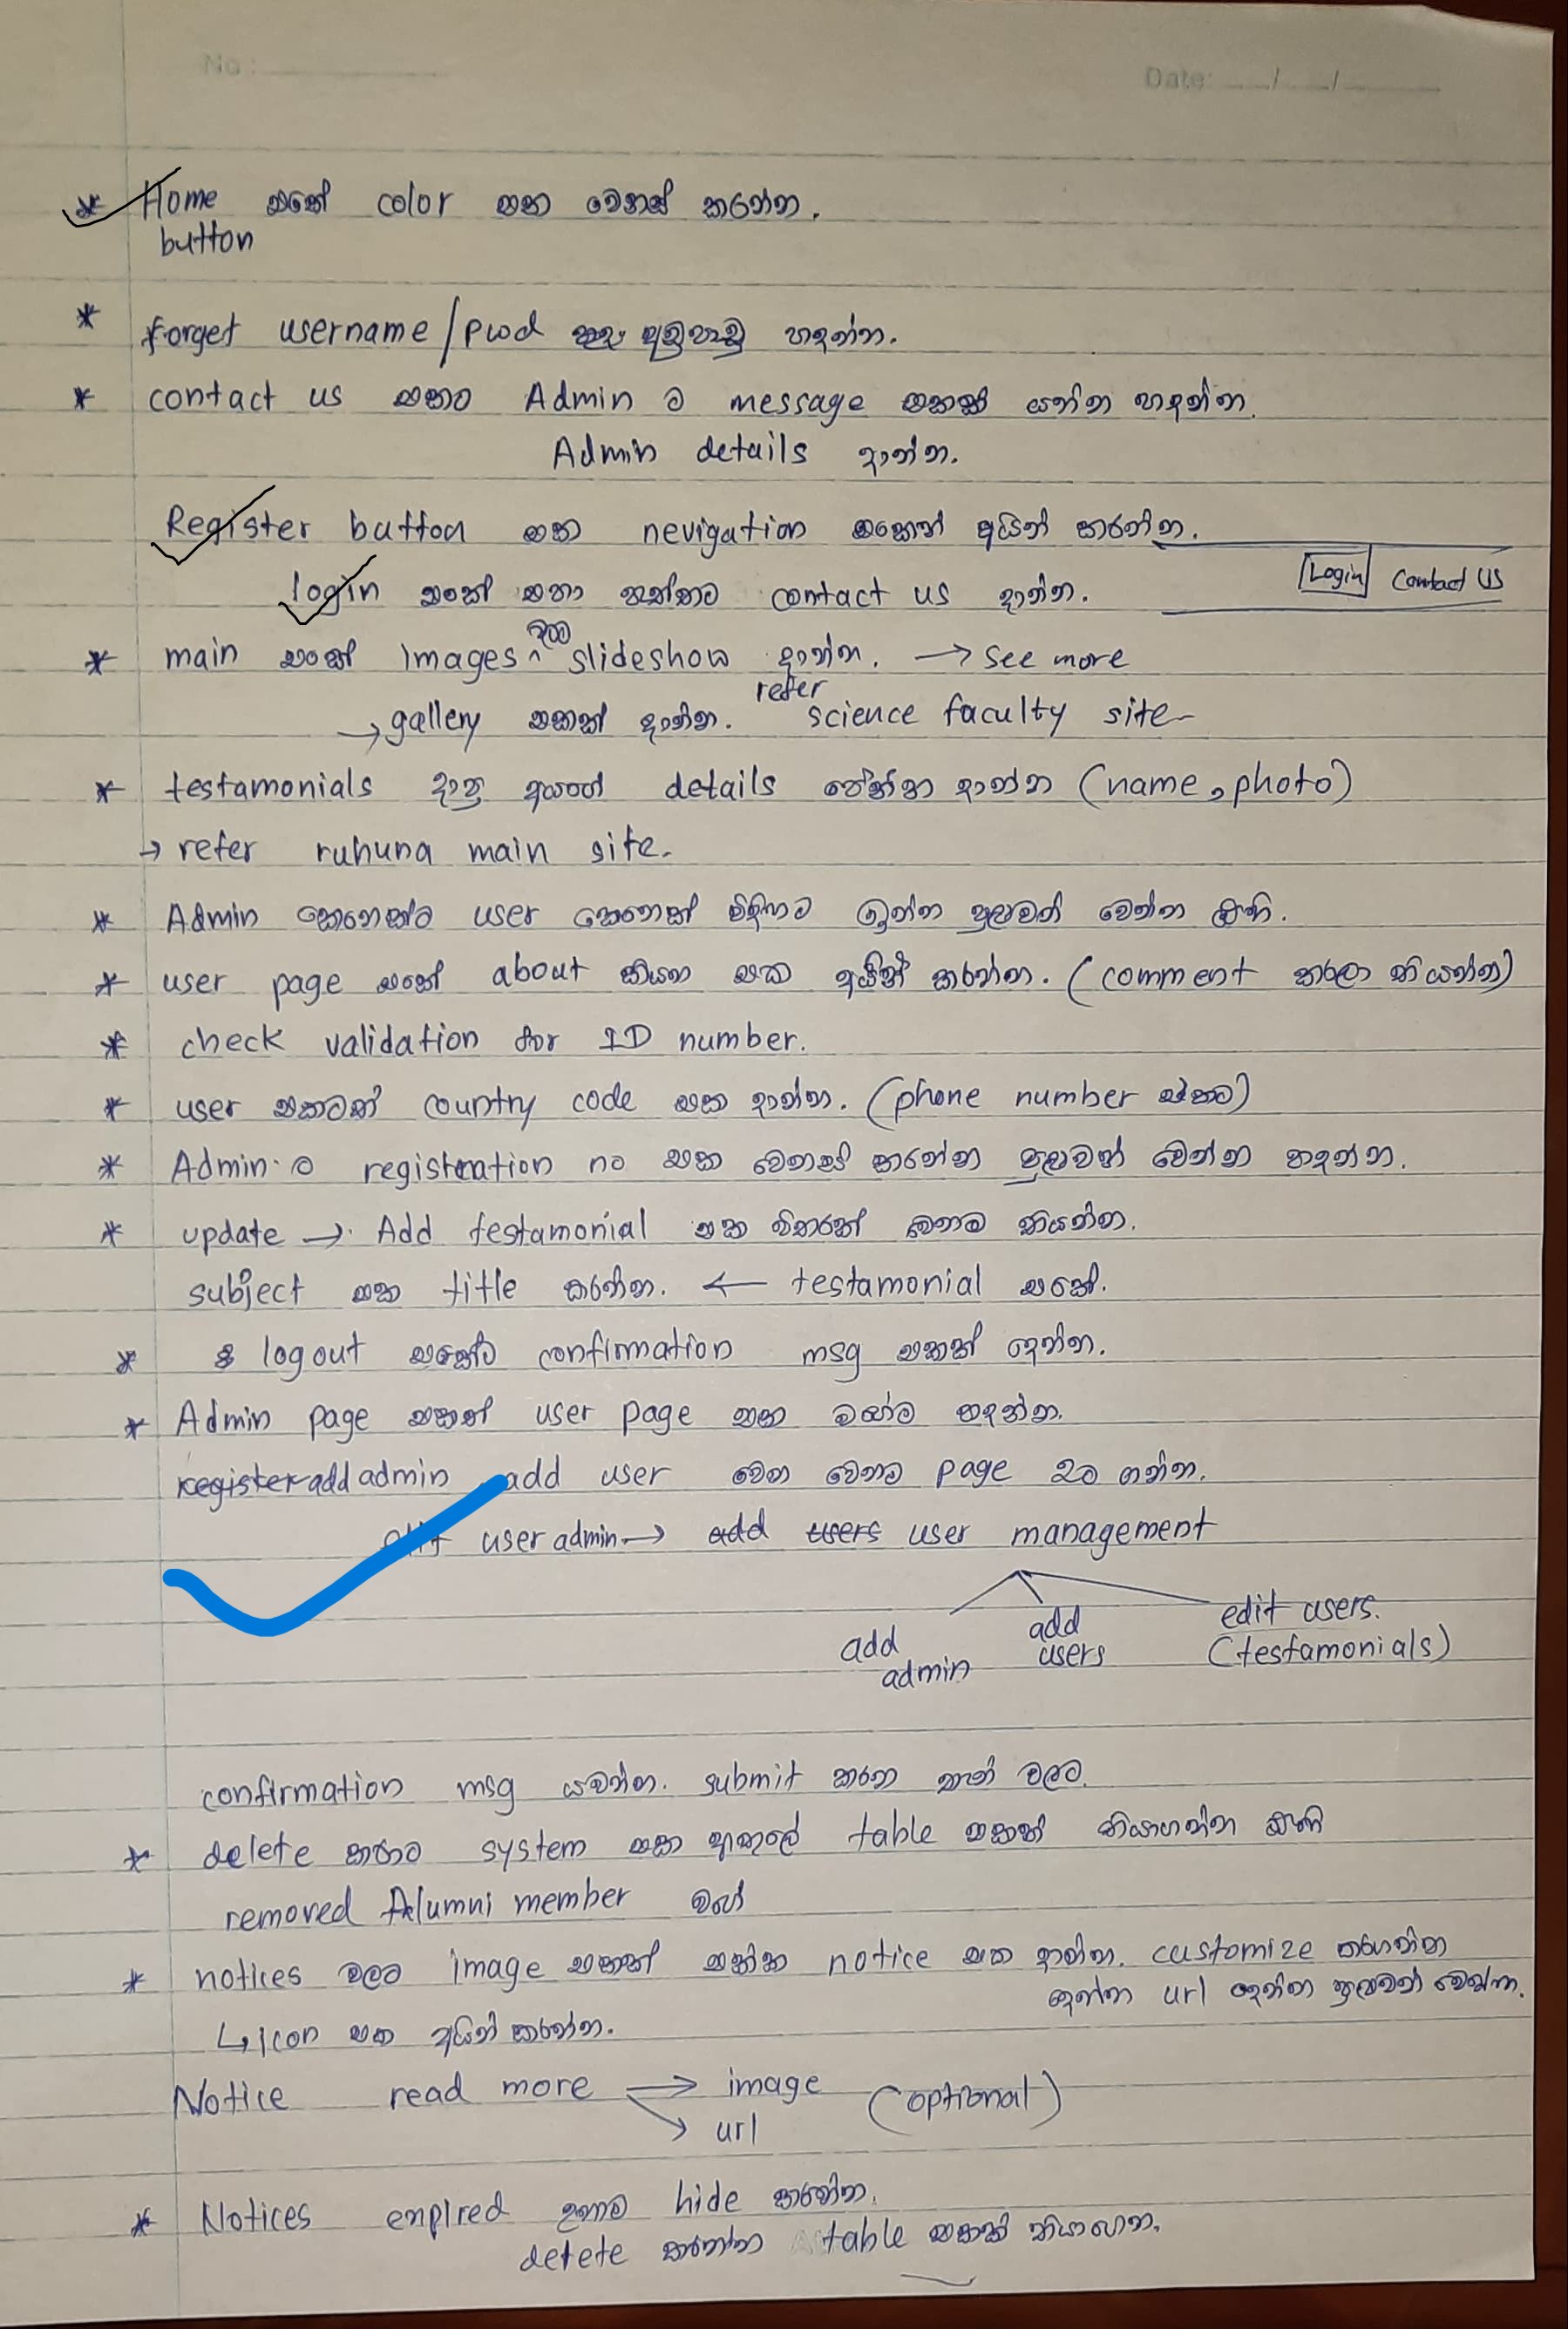 No :
Date: / /
* Home එකේ color එක වෙනස් කරන්න.
button
* forget username/pwd අඩුපාඩු හදන්න.
* contact us එකට Admin ට message එකක් යන්න හදන්න.
Admin details දාන්න.
Register button එක nevigation එකෙන් අයින් කරන්න.
login එකේ එහා පැත්තට contact us දාන්න.
Login Contact US
* main එකේ Images වලට slideshow දාන්න. → see more
→ gallery එකක් දාන්න. refer science faculty site
* testamonials දාපු අයගේ details පේන්න දාන්න (name, photo)
→ refer ruhuna main site.
* Admin කෙනෙක්ට user කෙනෙක් විදිහට ඉන්න පුළුවන් වෙන්න ඕනි.
* user page එකේ about කියන එක අයින් කරන්න. (comment කරලා තියන්න)
* check validation for ID number.
* user එකටත් country code එක දාන්න. (phone number එකට)
* Admin ට registration no එක වෙනස් කරන්න පුළුවන් වෙන්න හදන්න.
* update → Add testamonial එක විතරක් වෙනම තියන්න.
subject එක title කරන්න. ← testamonial එකේ.
* logout එකේට confirmation msg එකක් දෙන්න.
* Admin page එකත් user page එක වගේම හදන්න.
register add admin add user වෙන වෙනම page 2ට ගන්න.
user admin → add users user management
add admin
add users
edit users.
(testamonials)
confirmation msg යවන්න. submit කරන තැන් වලට.
* delete කලාට system එක ඇතුලේ table එකක් තියාගන්න ඕනි
removed Alumni member වගේ
* notices වලට image එකක් එක්ක notice එක දාන්න. customize කරගන්න
දෙන්න url දෙන්න පුළුවන් වෙන්න.
↳ Icon එක අයින් කරන්න.
Notice read more → image (optional)
→ url
* Notices expired උනාම hide කරන්න.
detete කරන්න table එකක් තියාගෙන.